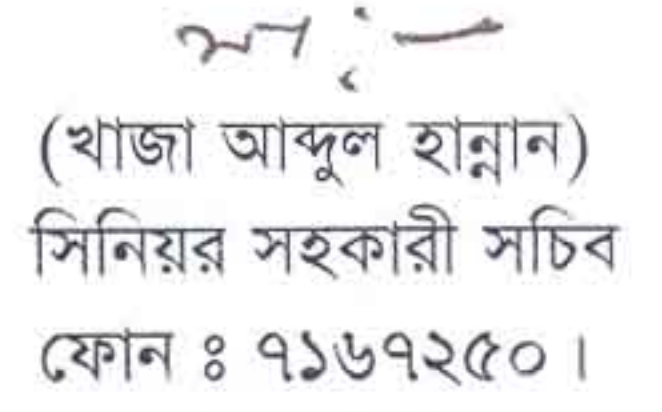 স্বাঃ-
(খাজা আব্দুল হান্নান)
সিনিয়র সহকারী সচিব
ফোন ঃ ৭১৬৭২৫০।